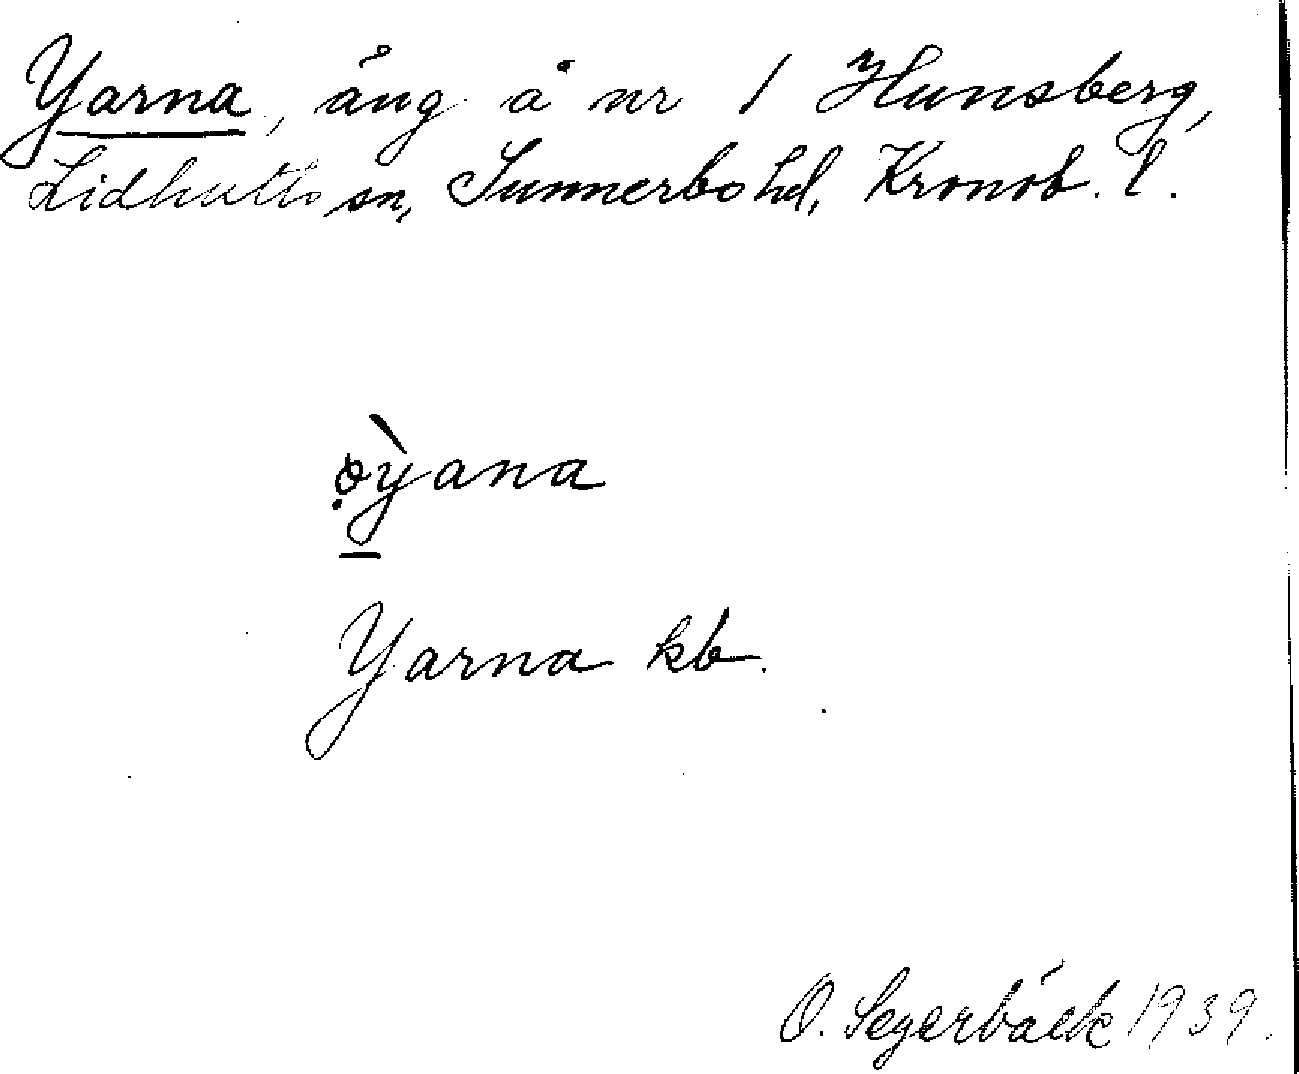 Yarna, äng å nr 1 Hunsberg,
Lidhults sn, Sunnerbo hd, Kronob. l.
o̩ỳana
Yarna kb.
O. Segerbäck 1939.